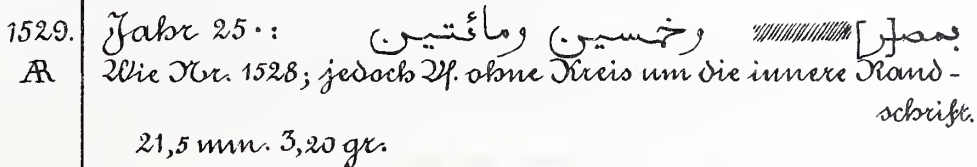 1529. Jahr 25·: بمصر] وخمسين ومائتين
AR Wie Nr. 1528; jedoch Vf. ohne Kreis um die innere Rand-
schrift.
21,5 mm. 3,20 gr.